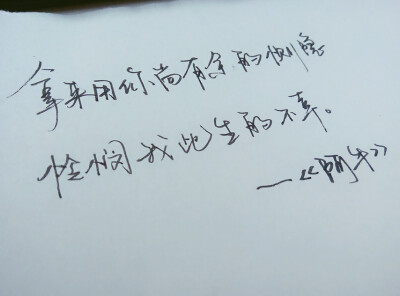 拿来用你尚有余的恻隐
怜悯我此生的不幸。
——《阿牛》